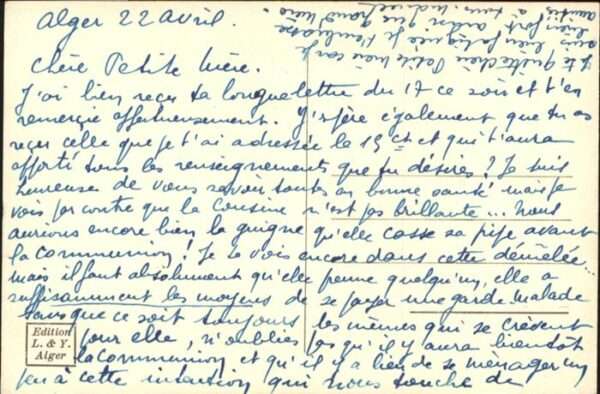 Alger 22 avril.
Chère Petite Mère.
J'ai bien reçu ta longue lettre du 17 ce soir et t'en
remercie affectueusement. J'espère également que tu as
reçu celle que je t'ai adressée le 19 ct et qui t'aura
apporté tous les renseignements que tu désires? Je suis
heureuse de vous savoir toutes en bonne santé mais je
vois par contre que la cousine n'est pas brillante... nous
aurions encore bien la guigne qu'elle casse sa pipe avant
la communion! Je te vois encore dans cette démêlée...
mais il faut absolument qu'elle prenne quelqu'un, elle a
suffisamment les moyens de se payer une garde malade
sans que ce soit toujours les mêmes qui se crèvent
pour elle, n'oublies pas qu'il y aura bientôt
la communion et qu'il y a lieu de se ménager un
peu à cette intention qui nous touche de
Je te quitte chère Petite Mère car je
suis bien fatiguée je t'embrasse
bien fort ainsi que
Edition
L. & Y.
Alger